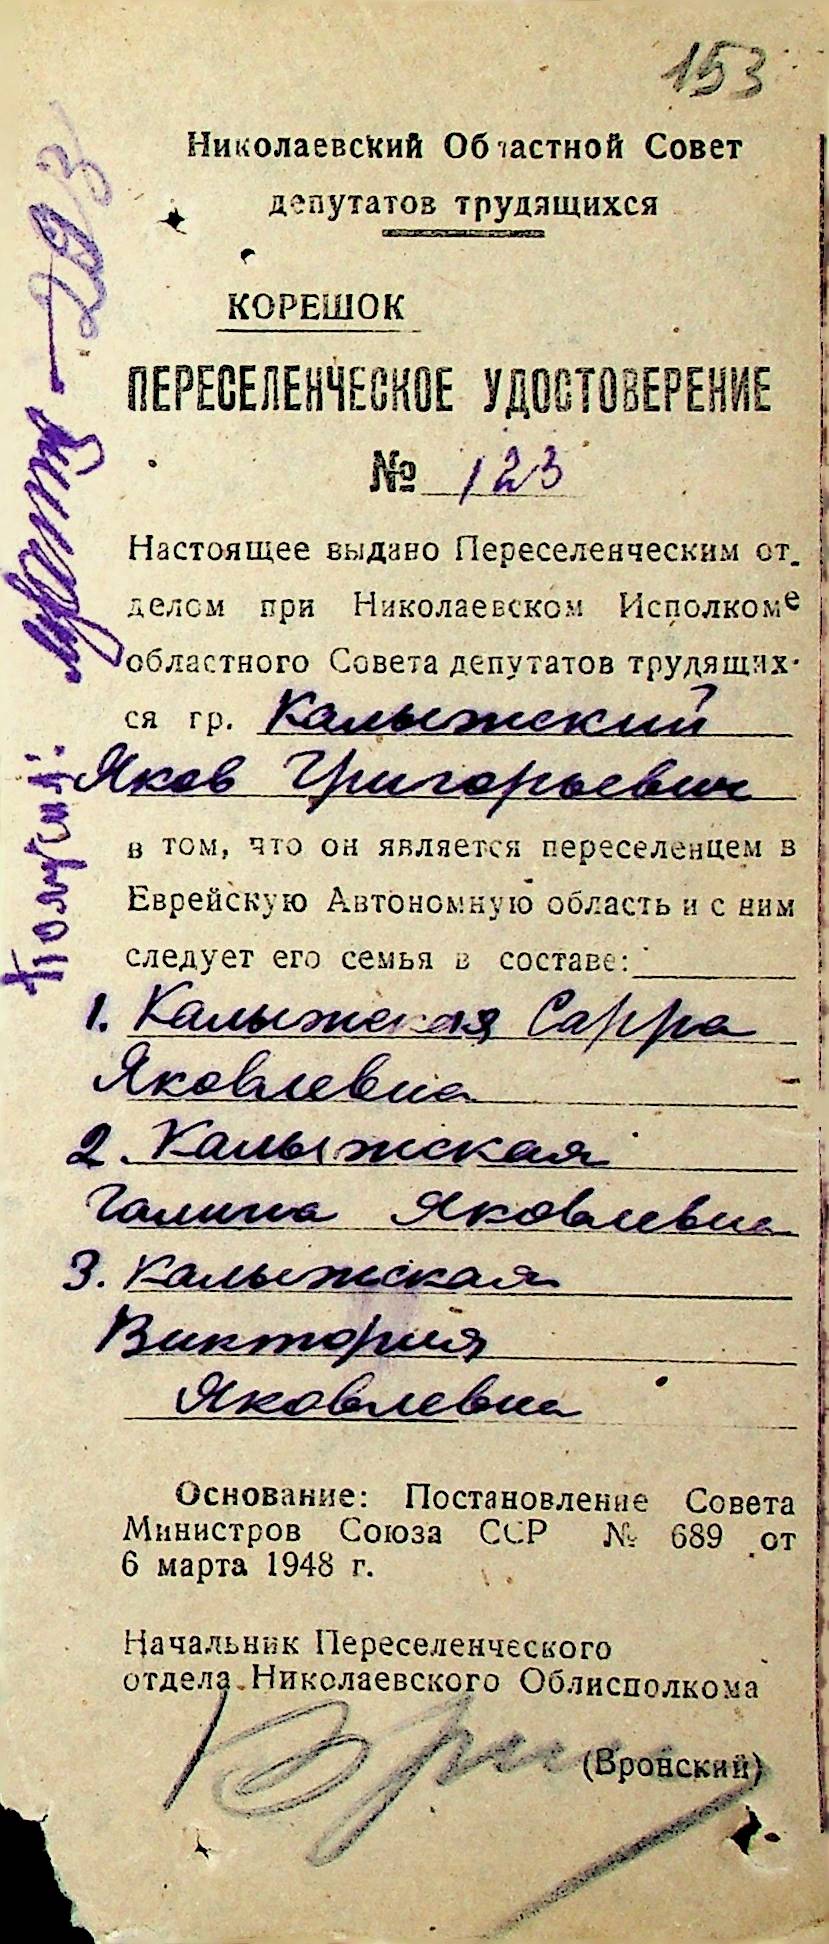 153
Николаевский Областной Совет
депутатов трудящихся
КОРЕШОК
ПЕРЕСЕЛЕНЧЕСКОЕ УДОСТОВЕРЕНИЕ
№ 123
Настоящее выдано Переселенческим от-
делом при Николаевском Исполкоме
областного Совета депутатов трудящих-
ся гр. Калыжский
Яков Григорьевич
в том, что он является переселенцем в
Еврейскую Автономную область и с ним
следует его семья в составе:
1. Калыжская Сарра
Яковлевна
2. Калыжская
Галина Яковлевна
3. Калыжская
Виктория
Яковлевна
Основание: Постановление Совета
Министров Союза ССР № 689 от
6 марта 1948 г.
Начальник Переселенческого
отдела Николаевского Облисполкома
(Вронский)
Получил: